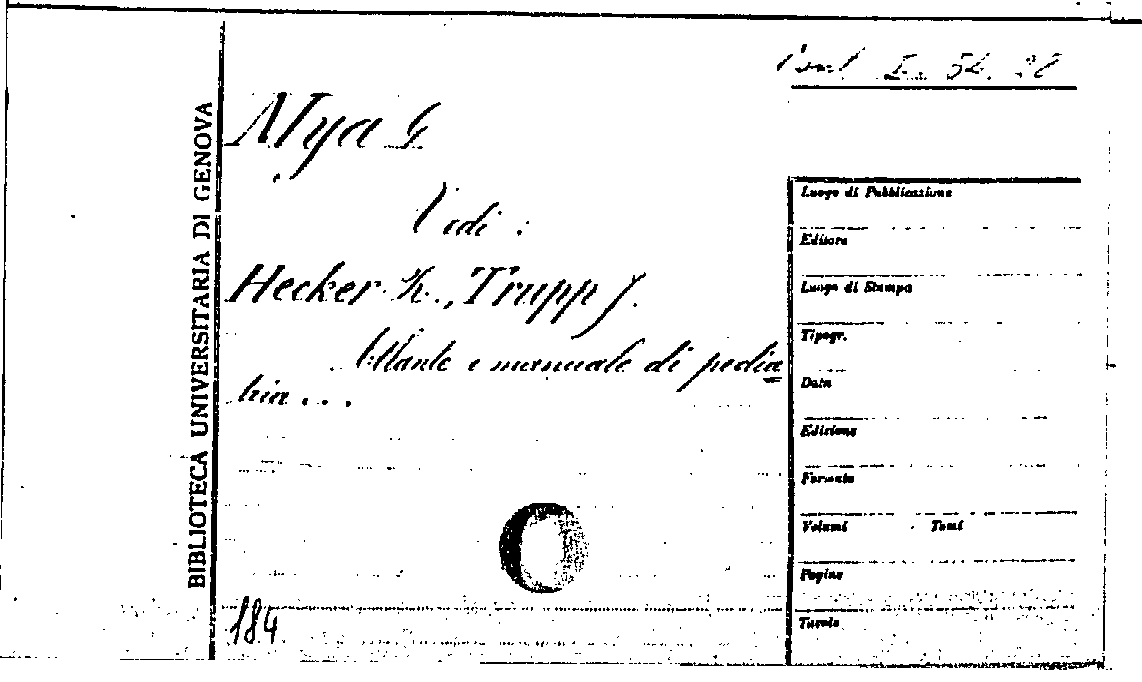 54. 28
Mya G
Vedi :
Hecker R., Trupp J.
Atlante e manuale di pedia
tria . . .
184
BIBLIOTECA UNIVERSITARIA DI GENOVA
Luogo di Pubblicazione
Editore
Luogo di Stampa
Tipogr.
Data
Edizione
Formato
Volumi Tomi
Pagine
Tavole